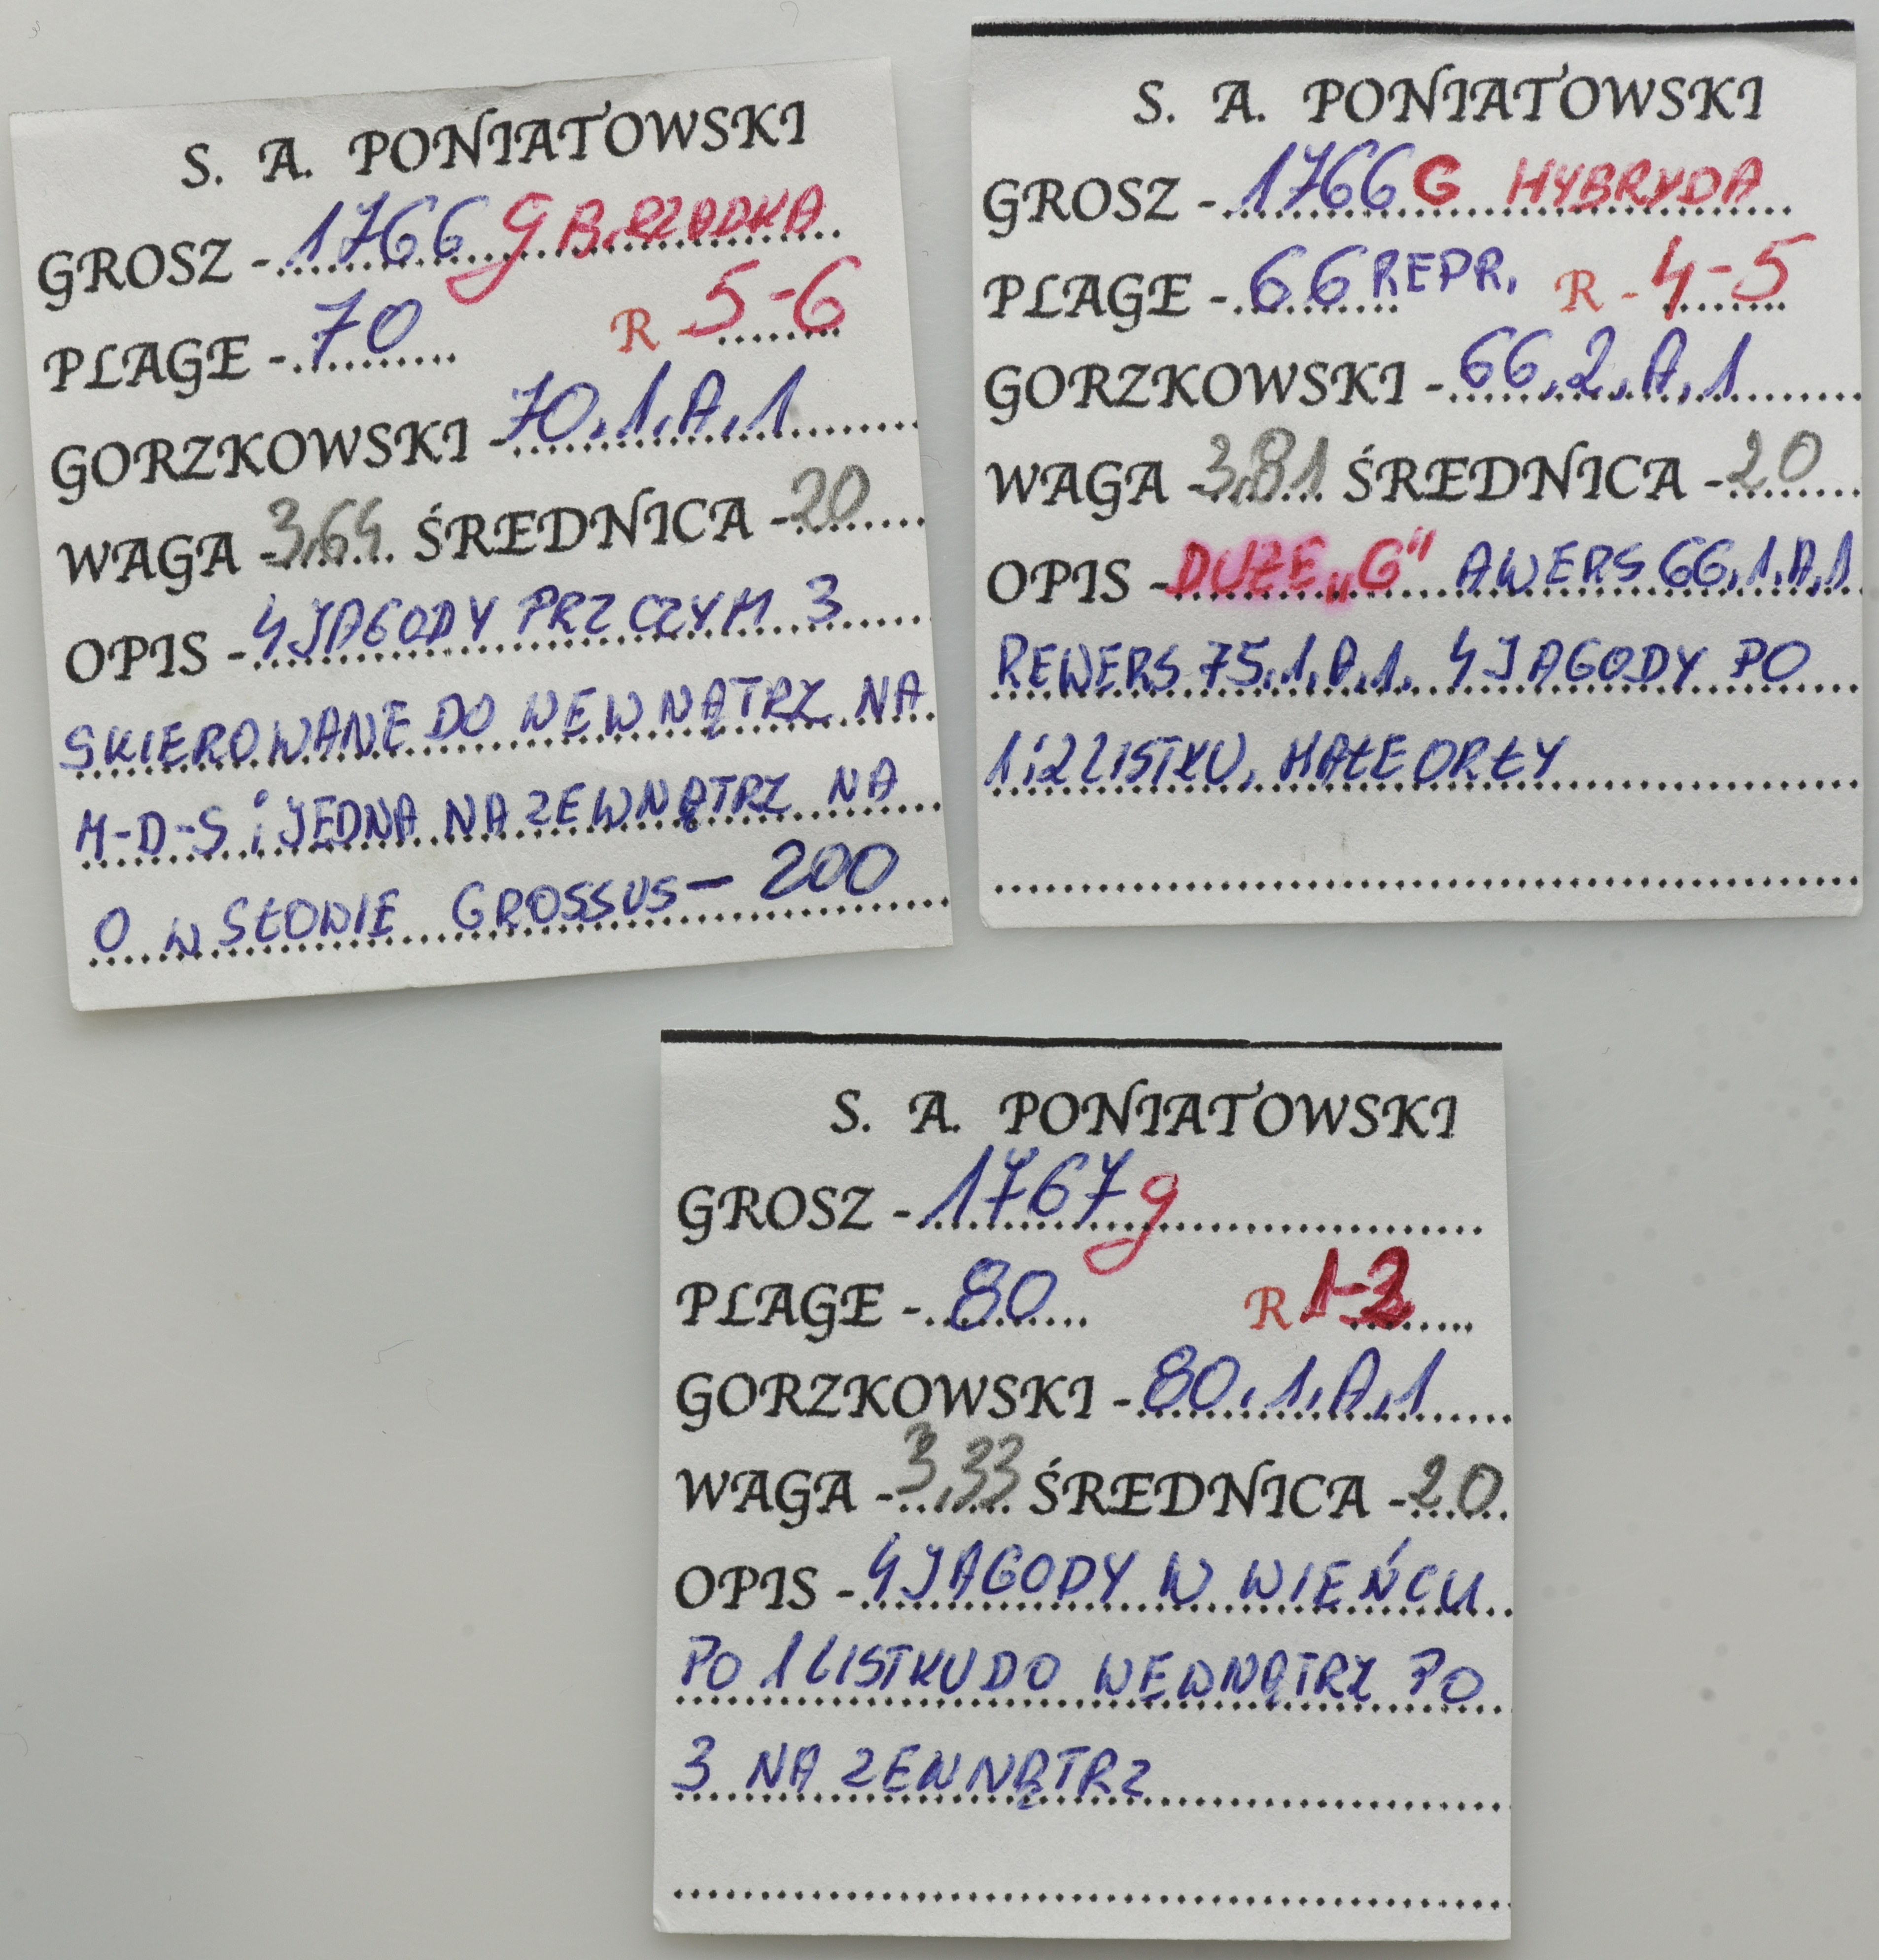 S. A. PONIATOWSKI
GROSZ - 1766 g B. RZADKA
PLAGE - 70 R - 5-6
GORZKOWSKI - 70.1.A.1
WAGA - 3,64 ŚREDNICA - 20
OPIS - 4 JAGODY PRZ CZYM 3
SKIEROWANE DO WEWNĄTRZ NA
M-D-S i JEDNA NA ZEWNĄTRZ NA
O W SŁOWIE GROSSUS - 200
S. A. PONIATOWSKI
GROSZ - 1766 G HYBRYDA
PLAGE - 66 REPR. R - 4-5
GORZKOWSKI - 66.2.A.1
WAGA - 3,81 ŚREDNICA - 20
OPIS - DUŻE „G" AWERS 66.1.A.1
REWERS 75.1.A.1. 4 JAGODY PO
1 i 2 LISTKU, MAŁE ORŁY
S. A. PONIATOWSKI
GROSZ - 1767 g
PLAGE - 80 R 1-2
GORZKOWSKI - 80.1.A.1
WAGA - 3,33 ŚREDNICA - 20
OPIS - 4 JAGODY W WIEŃCU
PO 1 LISTKU DO WEWNĄTRZ PO
3 NA ZEWNĄTRZ